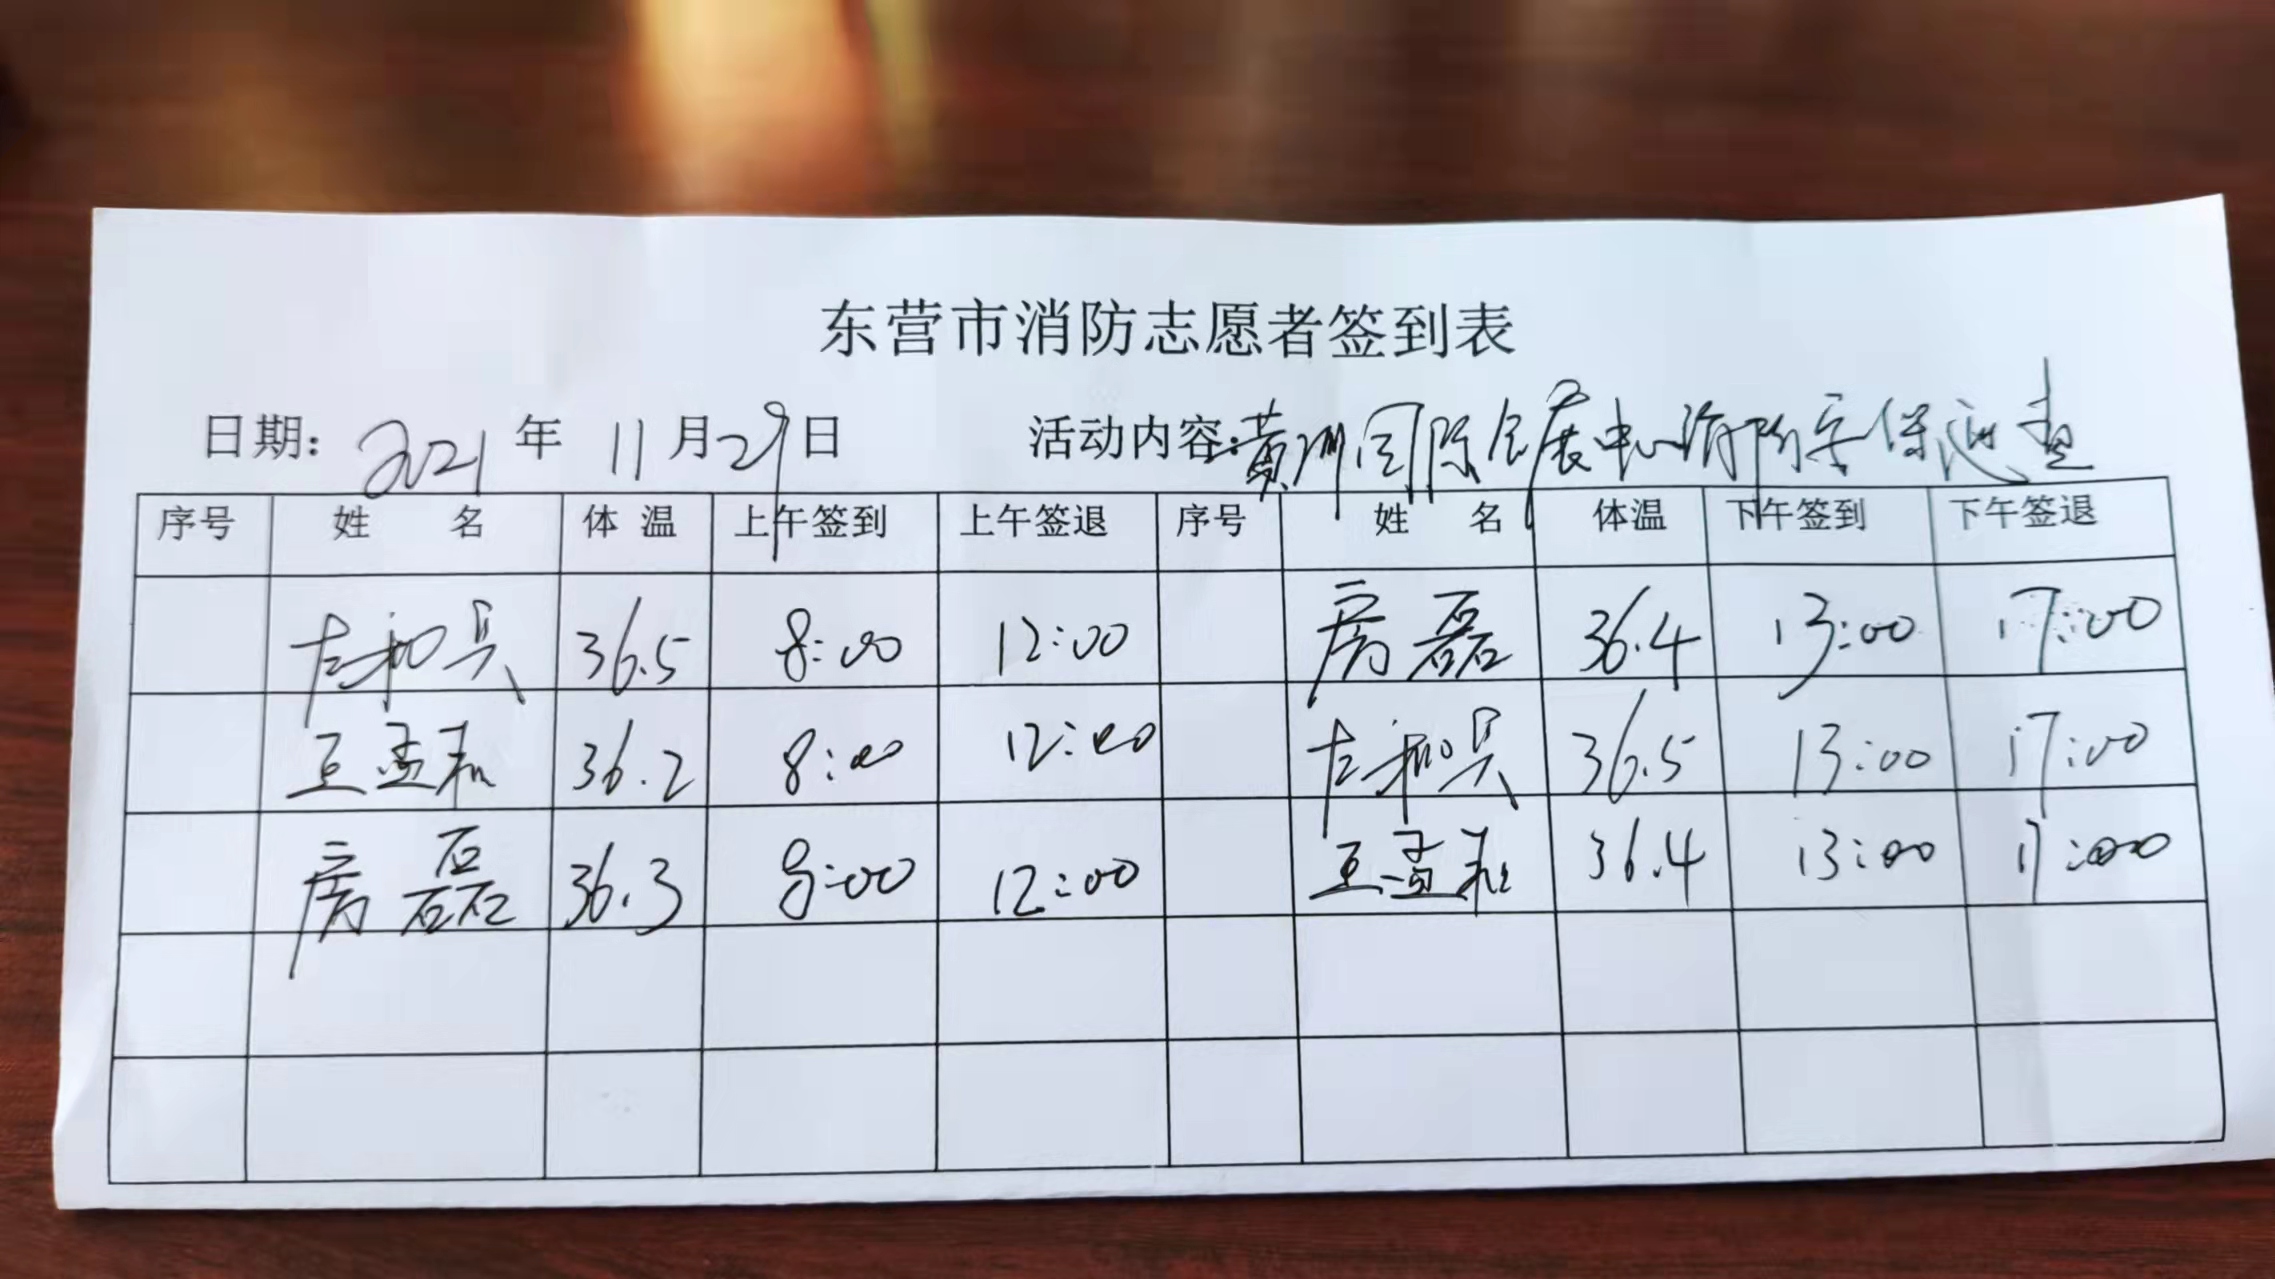 东营市消防志愿者签到表
日期: 2021 年 11 月 29 日 活动内容: 黄河国际会展中心消防安保巡查
序号 姓名 体温 上午签到 上午签退 序号 姓名 体温 下午签到 下午签退
左和兵 36.5 8:00 12:00 房磊 36.4 13:00 17:00
王孟和 36.2 8:00 12:00 左和兵 36.5 13:00 17:00
房磊 36.3 8:00 12:00 王孟和 36.4 13:00 17:00